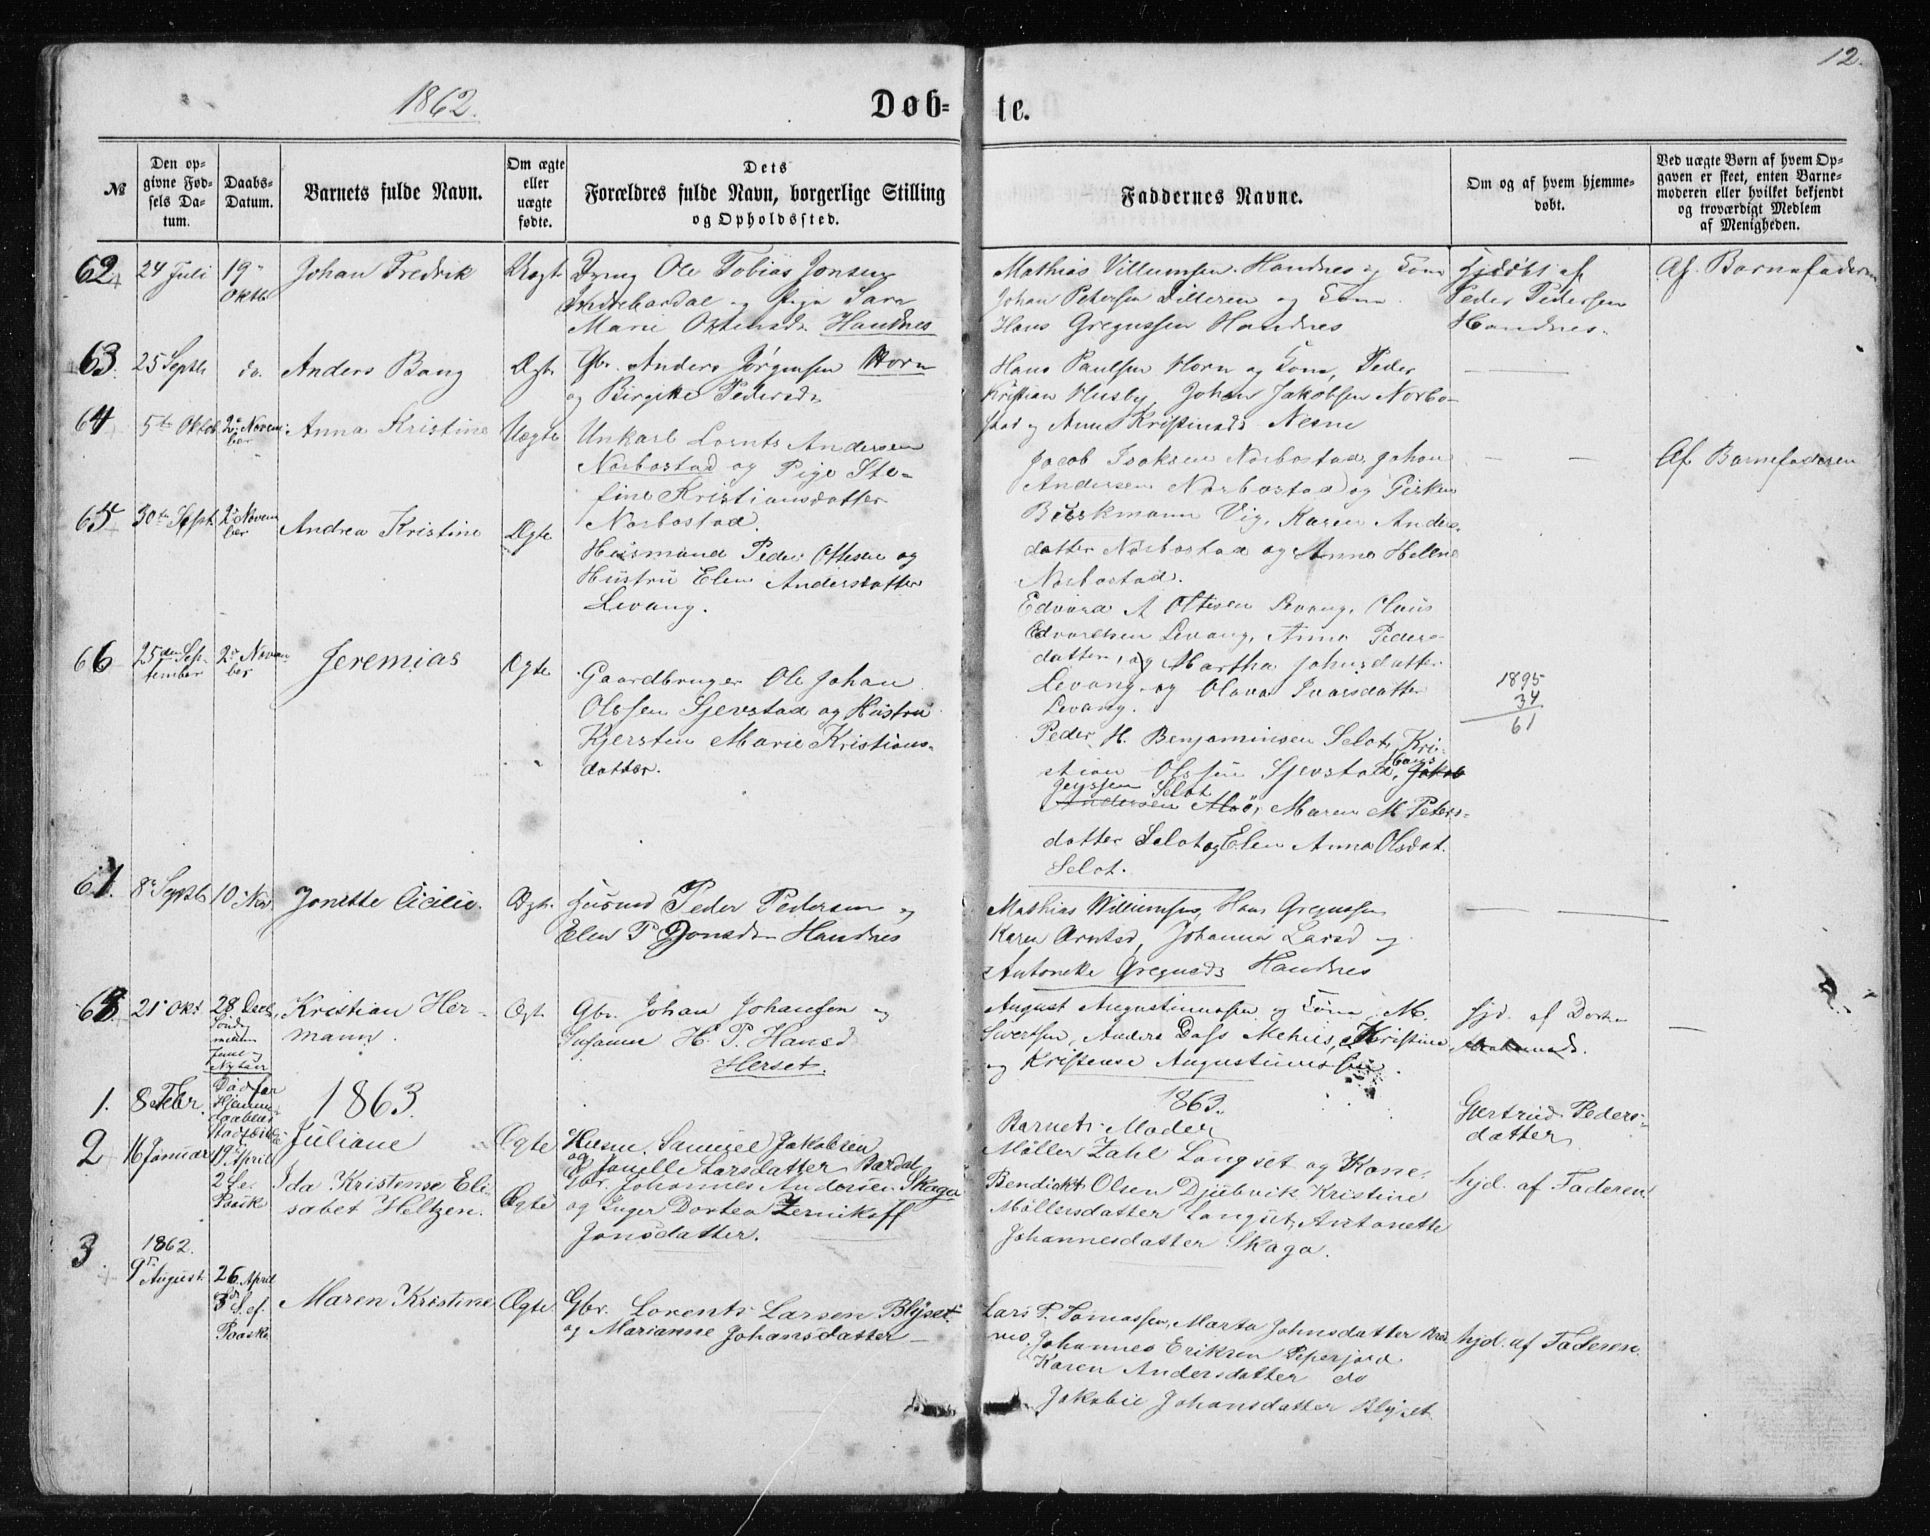 12.
1862.
Døb- te.
№
Den opgivne Fødsels Datum.
Daabs-Datum.
Barnets fulde Navn.
Om ægte eller uægte fødte.
Dets Forældres fulde Navn, borgerlige Stilling og Opholdssted.
Faddernes Navne.
Om og af hvem hjemmedøbt.
Ved uægte Børn af hvem Opgaven er skeet, enten Barnemoderen eller hvilket bekjendt og troværdigt Medlem af Menigheden.
62 24 Juli 19 Oktb Johan Fredrik Uægt
Ole Tobias Jonsen
og Pige Sara
Marie Handnes
Mathias Villumsen Handnes og Kone
Johan Petersen og Kone
Hans Gregussen Handnes
af
Peder Pedersen
Handnes
Af Barnefaderen
63. 25 Septb do. Anders Bang Ægt.
Gbr. Anders Jørgensen Horn
og Birgitte Pedersd.
Hans Paulsen Horn og Kone, Peder
Kristian Husby, Johan Jakobsen Norbo-
stad og Anne Kristensd Nesne
64 5te Oktob 2. Novem-
ber Anna Kristine Uægte
Unkarl Lornts Andersen
Norbostad og Pige Ste-
fine Kristiansdatter
Norbostad.
Jacob Isaksen Norbostad, Johan
Andersen Norbostad og Pisken
Vig, Karen Anders-
datter Norbostad og Anne Helene
Norbostad.
Af Barnefaderen
65 30te Sept. 2. Novem
ber Andrea Kristine Ægte
Husmand Peder Ottesen og
Hustru Elen Andersdatter
Levang.
Edvard A Ottesen Levang, Claus
Edvardsen Levang, Anne Peders-
datter, og Martha Johnsdatter
Levang og Olava Ivarsdatter
Levang.
66 25de Sep-
tember 2. Novem-
ber Jeremias Ægte
Gaardbruger Ole Johan
Olssen Sjevstad og Hustru
Kjersten Marie Kristians-
datter.
Peder H. Benjaminsen Selot, Kri-
stian Olssen Sjevstad, Jakob
Jenssen Selot
Andersen Alsø, Maren M Peters-
datter Selot og Elen Anna Olsdat.
Selot.
1895
34
61
67. 8 Septb 10 Nov. Jonette Cicilie. Ægt.
Husmd Peder Pedersen og
Elen P Jonsd Handnes
Mathias Willumsen, Hans Gregussen
Karen Arntsd, Johanna Larsd og
Antonette Gregusd Handnes
68. 21 Okt 28 Decb,
Sønd.
mellem
Juul og
Nytaar
Kristian Her-
mann. Ægt.
Gbr. Johan Johansen og
Susanna H. P. Hansd
Herset.
August Augustinussen og Kone, M.
Sivertsen, Anders Dass Mehus, Kristine
og Kristense Augustinussen.
hjd. af Dorthe
1863.
1863.
1. 8 Febr. Død før
Hjemme-
daabens
Stadfæstelse
Juliane Ægte
Husm. Samuel Jakobsen
og Jonelle Larsdatter Bardal
Barnets Moder
Gertrud Peders-
datter
2 16 Januar 19 April
2 Pe.
Paaske
Ida Kristense Eli-
sabet Heltzen. Ægte
Gbr. Johannes Andersen Skaga
og Inger Dortea Zernikoff
Jonsdatter.
Møller Zahl Langset og Kone,
Benedikt Olsen Djubvik Kristine
Møllersdatter Langset, Antonette
Johannesdatter Skaga.
hjd. af Faderen
3. 1862.
9 August. 26 April
3 S. ef.
Paaske
Maren Kristine Ægte
Gbr. Lorents Larsen Blyset
og Marianne Johansdatter
Lars P. Tomassen, Marta Johnsdatter
Johannes Eriksen
Karen Andersdatter do
Jakobie Johansdatter Blyset
hjd. af Faderen